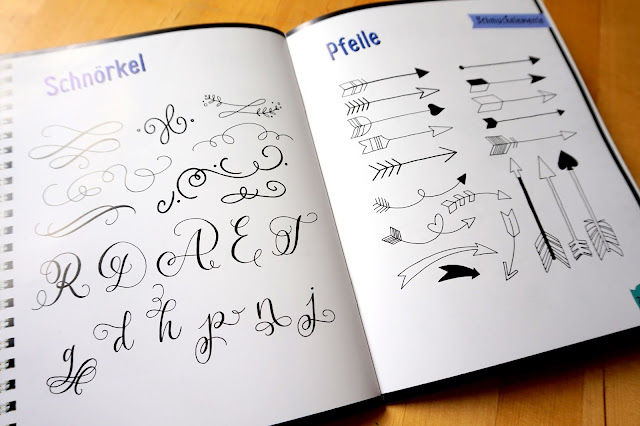 Schnörkel
H
R D A E T
g d h p n j
Schmuckelemente
Pfeile